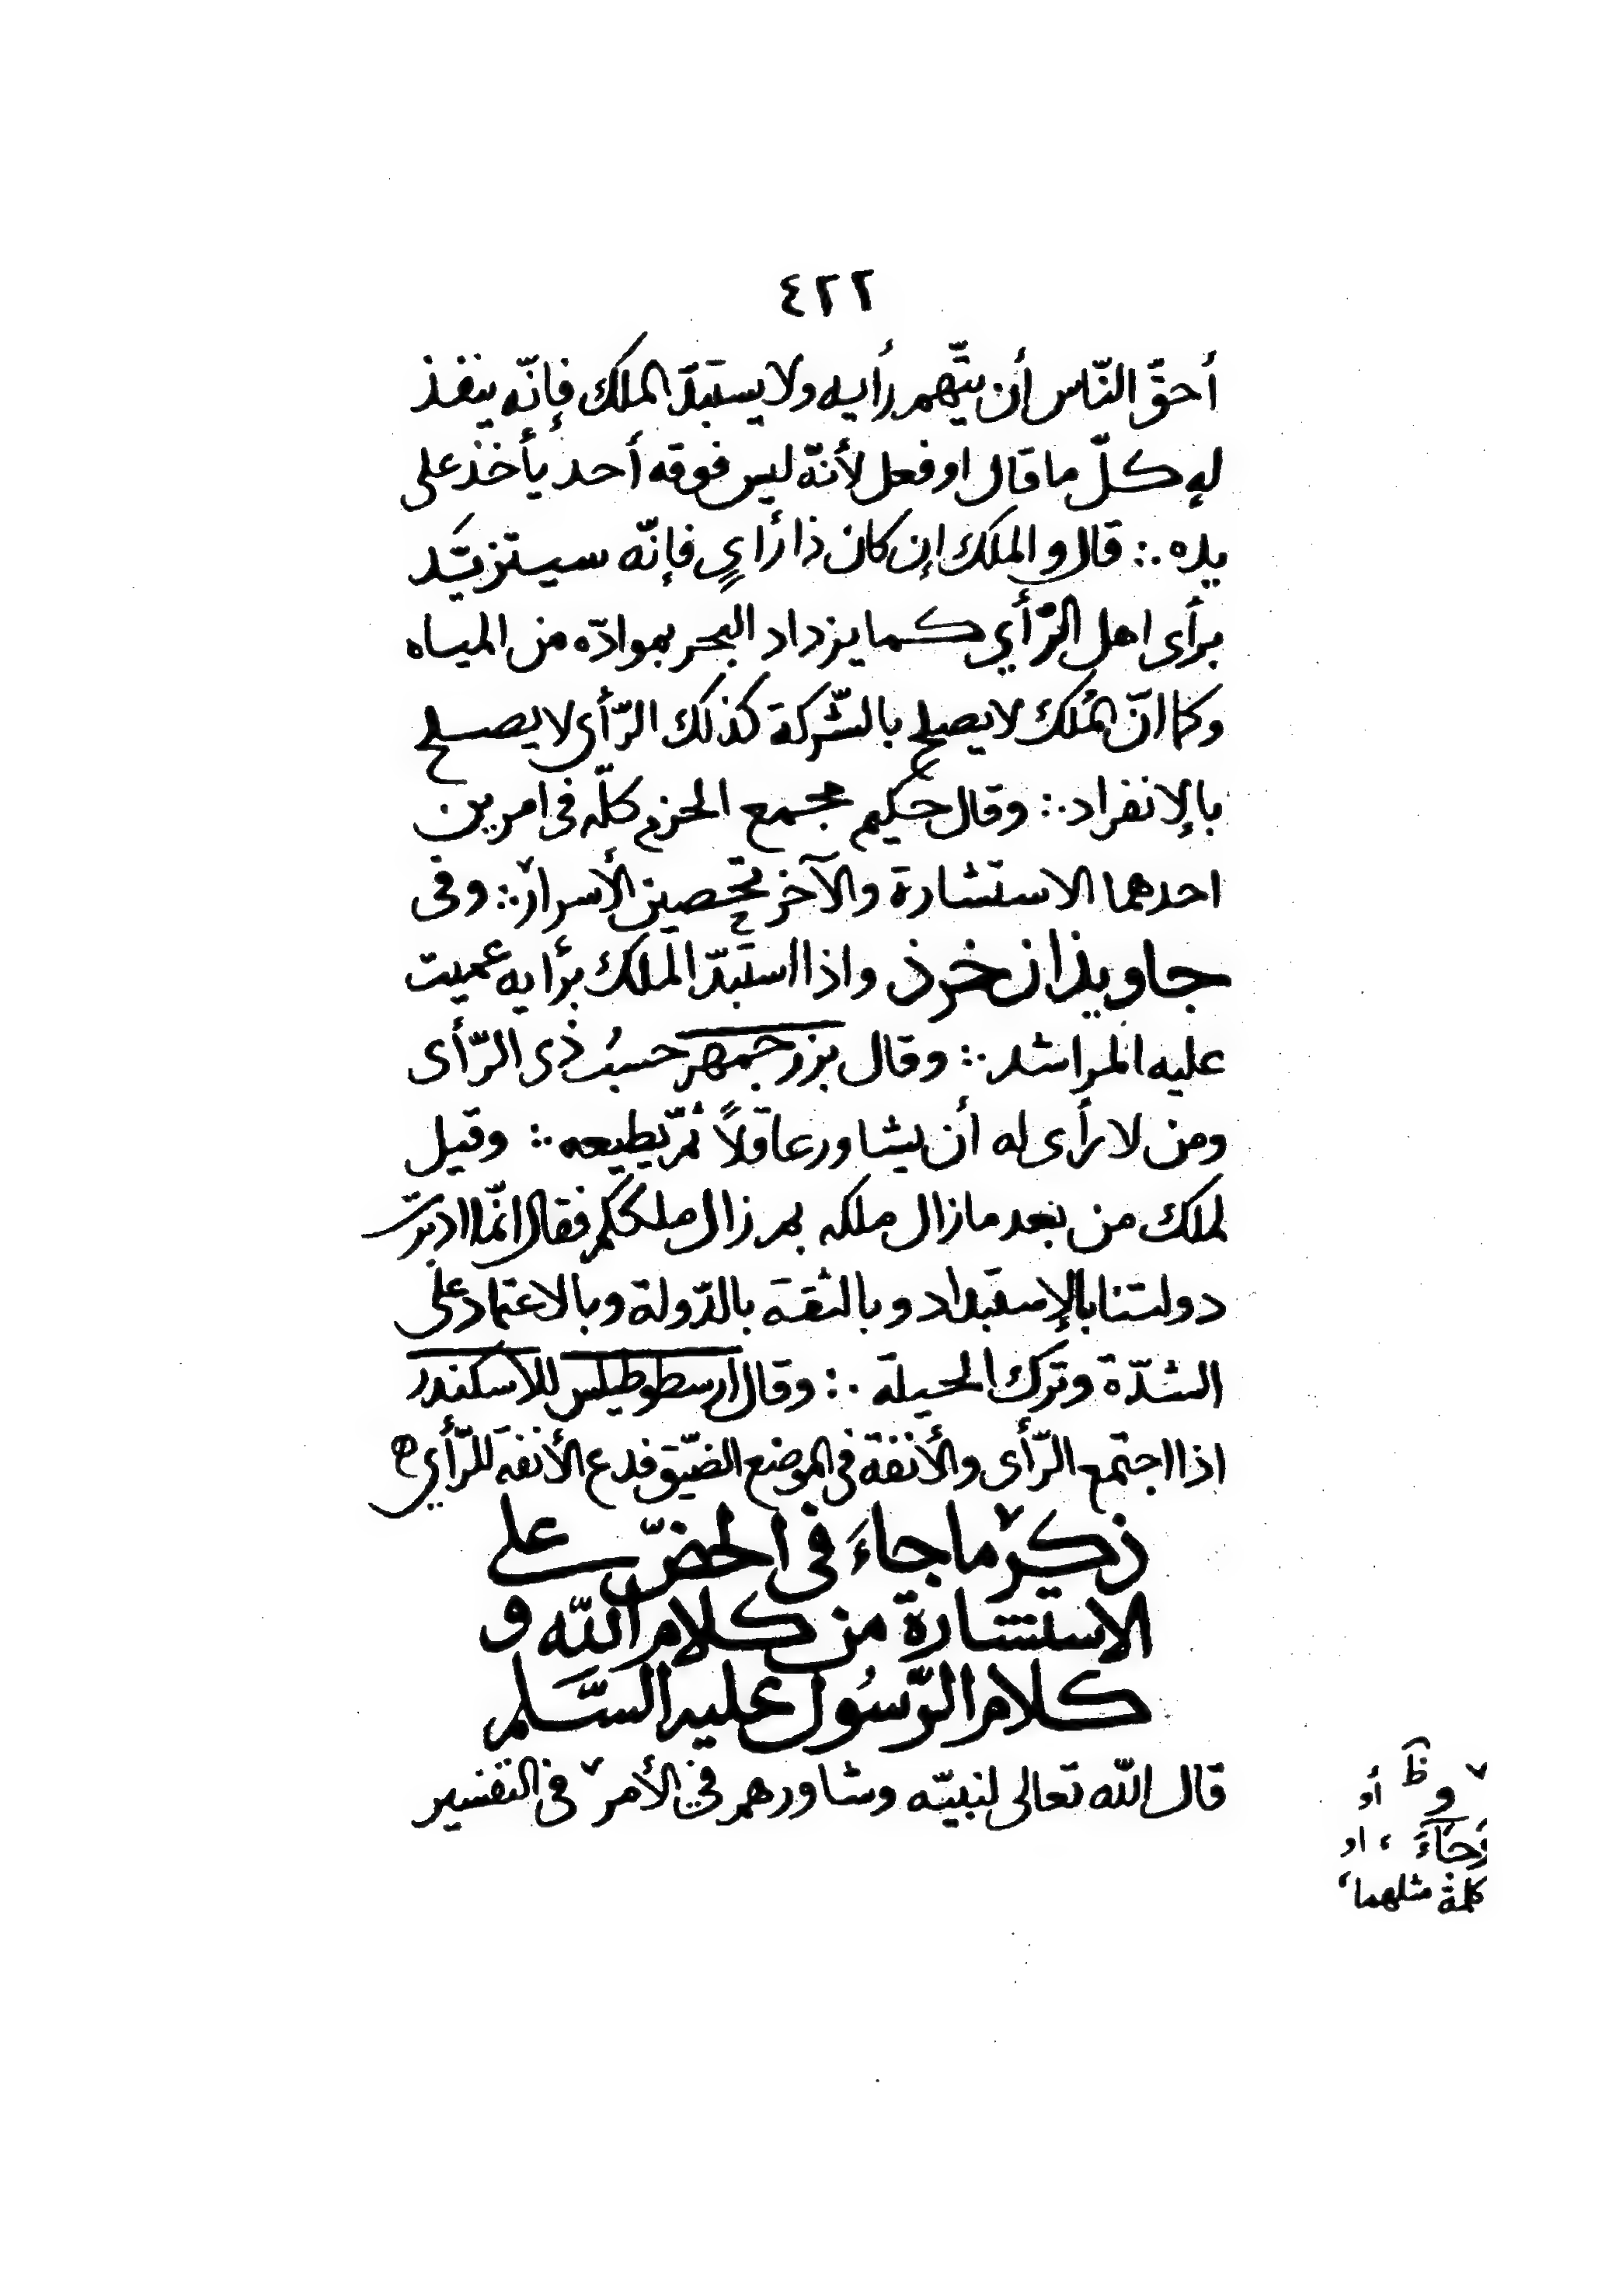 ٤٢٢
أحقّ النّاس أن يتّهم رأيه ولا يستبدّ الملك فإنّه ينفذ
له كلّ ما قال او فعل لأنّه ليس فوقه أحد يأخذ على
يده ∴ قال والملك إن كان ذا رأيٍ فإنّه سيتزيّد
برأى اهل الرّأي كما يزداد البحر بموادّه من المياه
وكما انّ المُلك لا يصلح بالشّركة كذلك الرّأى لا يصلح
بالإنفراد ∴ وقال حكيم مجمع الحزم كلّه فى امرين
احدهما الاستشارة والآخر تحصين الأسرار ∴ وفى
جاويذان خرذ واذا استبدّ الملك برأيه عميت
عليه المراشد ∴ وقال بزرجمهر حسبُ ذى الرّأى
ومن لا رأى له أن يشاور عاقلاً ثمّ يطيعه ∴ وقيل
لملك من بعد ما زال ملكه بم زال ملككم فقال انّما ادبرت
دولتنا بالإستبداد وبالثقة بالدّولة وبالاعتماد على
الشدّة وترك الحيلة ∴ وقال ارسطوطيلس للاسكندر
اذا اجتمع الرّأى والأنفة فى الموضع الضيّق فدع الأنفة للرّأي
ذكر ما جاءَ فى الحضّ على
الاستشارة من كلام الله و
كلام الرّسُول عليه السَّلم
قال الله تعالى لنبيّه وشاورهم فى الأمر ٧ فى التفسير
٧ و ظ أو
وَجَاءَ ، او
كلمة مثلهما